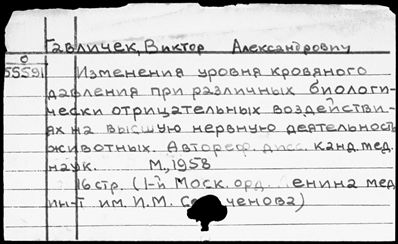 Гавличек, Виктор Александрович
0
55591
Изменения уровня кровяного
давления при различных биологи-
чески отрицательных воздействи-
ях на высшую нервную деятельность
животных. Автореф. дисс. канд. мед.
наук. М., 1958
16 стр. (1-й Моск. орд. енина мед
ин-т им. И.М. Се ченова)